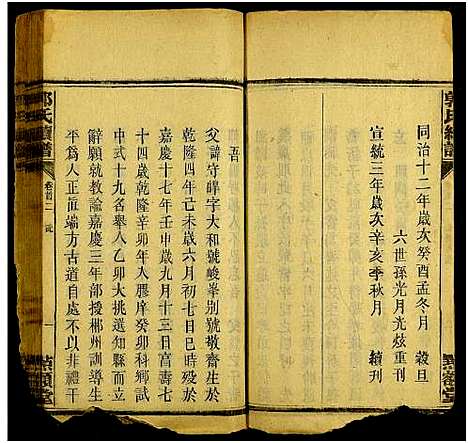 同治十二年歲次癸酉孟冬月　穀旦
六世孫光月光炫重刊
宣統三年歲次辛亥季秋月　續刊
郭氏續譜
卷首二
吾
父諱守皥字大和號峻峯別號敬齋生於
乾隆四年己未歲六月初七日巳時歿於
嘉慶十七年壬申歲九月十三日高壽七
十四歲乾隆辛卯年入膠庠癸卯科鄉試
中式十九名舉人乙卯大挑選知縣而立
辭願就教諭嘉慶三年部授郴州訓導生
平爲人正直端方古道自處不以非禮干